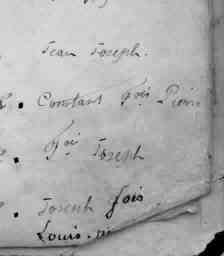 Jean Joseph.
Constant foi Pierre
foi Joseph
Joseph fois
Louis.